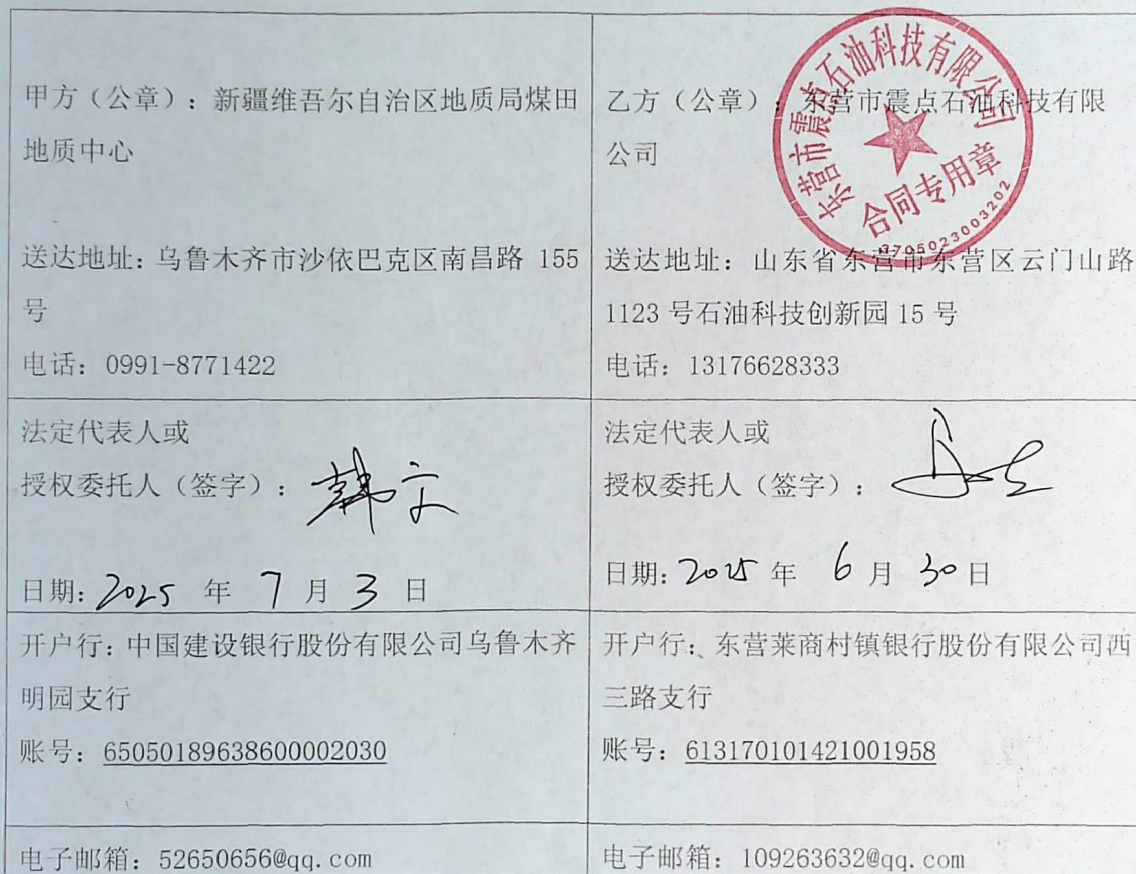 甲方（公章）：新疆维吾尔自治区地质局煤田
地质中心
送达地址：乌鲁木齐市沙依巴克区南昌路 155
号
电话：0991-8771422
乙方（公章）：东营市震点石油科技有限
公司
送达地址：山东省东营市东营区云门山路
1123 号石油科技创新园 15 号
电话：13176628333
东营市震点石油科技有限公司
合同专用章
3705023003202
法定代表人或
授权委托人（签字）：韩文
日期：2025 年 7 月 3 日
法定代表人或
授权委托人（签字）：
日期：2025 年 6 月 30 日
开户行：中国建设银行股份有限公司乌鲁木齐
明园支行
账号：65050189638600002030
开户行：、东营莱商村镇银行股份有限公司西
三路支行
账号：613170101421001958
电子邮箱：52650656@qq.com
电子邮箱：109263632@qq.com